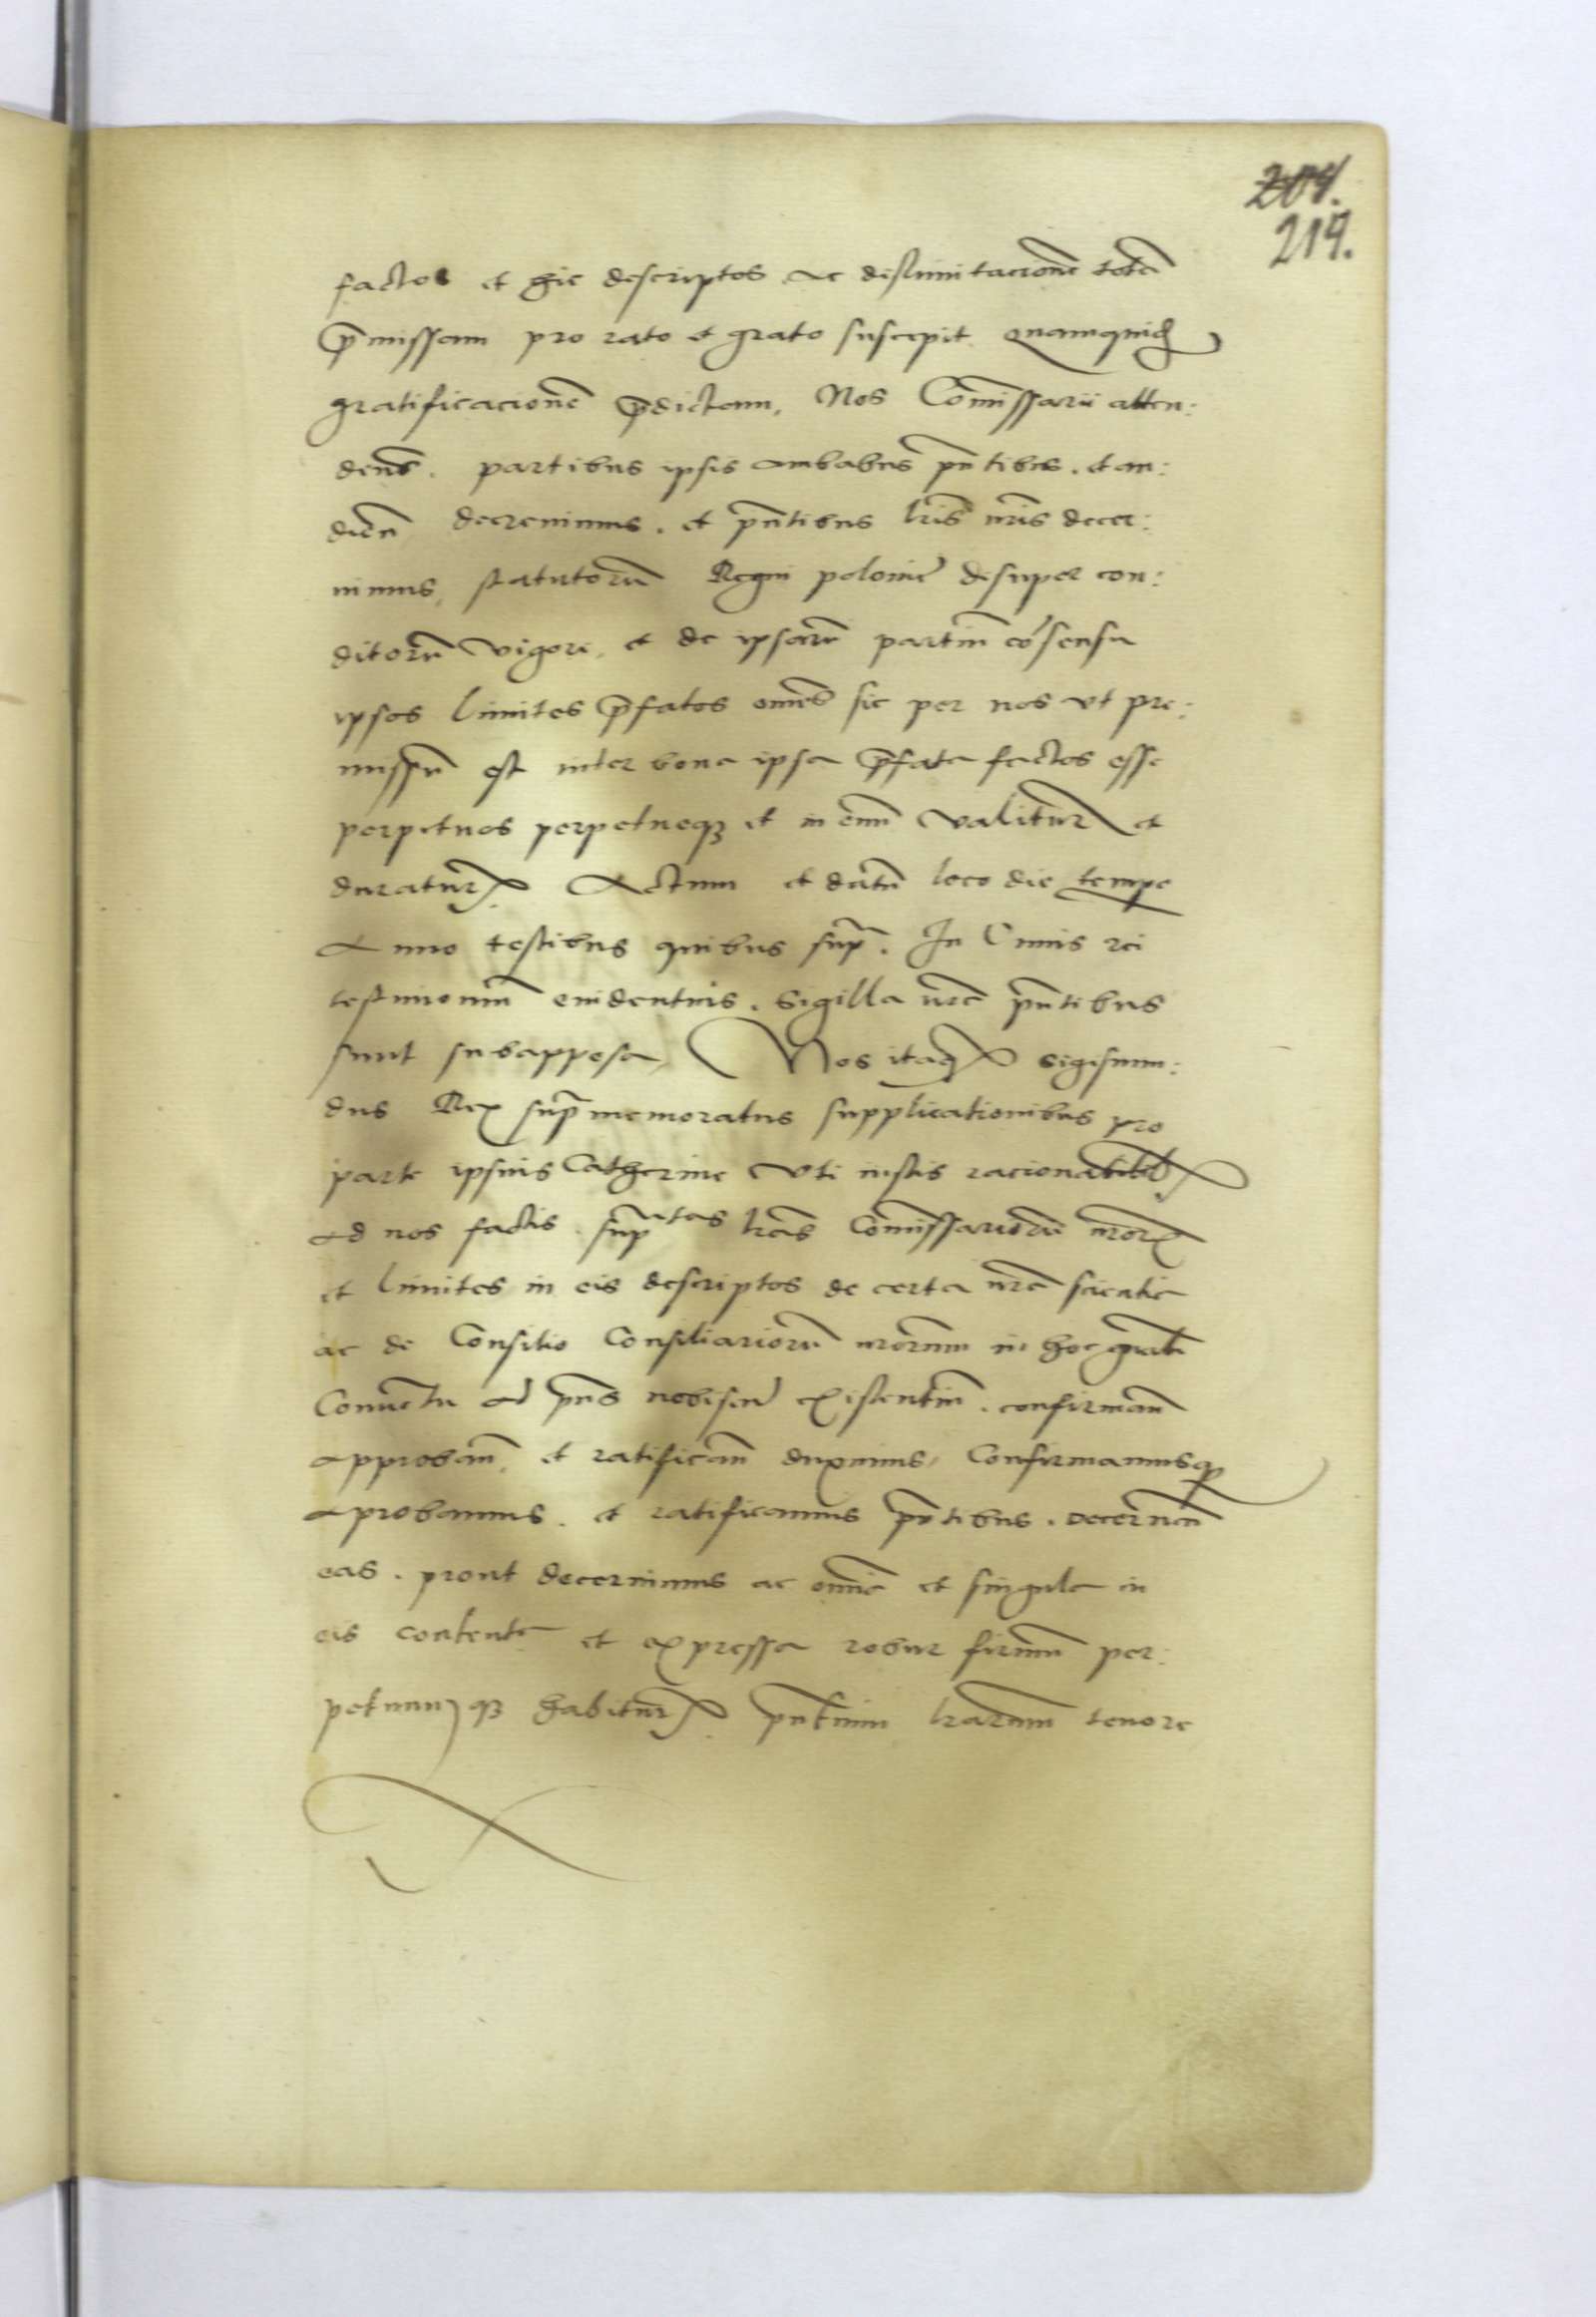 204.
219.
factos et hic descriptos ac dislimitacione totã
p̃missam pro rato et grato suscepit quamquid
gratificacionẽ p̃dictam, Nos Com̃issarii atten:
deñs. partibus ipsis ambabus p̃ntibus. et au:
dieñ decreuimus. et p̃ntibus lr̃is nr̃is decer:
nimus, statutorũ Regni polonie desuper con:
ditorũ vigore, et de ipsarũ partiũ cõsensu
ipsos limites p̃fatos om̃es sic per nos vt pre:
missum̃ est inter bona ipsa p̃fata factos esse
perpetuos perpetueqʒ et in euũ valitur̃ et
duratur̃. Actum et datũ loco die tempe
Anno testibus quibus sup̃. In Cuius rei
testimoniũ euidentius. Sigilla nr̃a p̃ntibus
sunt subappensa Nos itaqʒ Sigismun:
dus Rex sup̃memoratus supplicationibus pro
parte ipsius Catherine vti iustis racionabilibꝫ
ad nos factis. sup̃atas lr̃as Com̃issariorũ nr̃orꝝ
et limites in eis descriptos de certa nr̃a scientia
ac de Consilio Consiliariorũ nr̃orum in hoc gñali
Conuẽtu ad p̃ns nobiscũ existentiũ. confirmañ
approbañ, et ratificañ duximus, Confirmamusqʒ
aprobamus. et ratificamus p̃ntibus. decerneñ
eas. prout decernimus ac om̃ia et singula in
eis contenta et expressa robur firmũ per:
petuumqʒ habitur̃. p̃ntium lr̃arum tenore